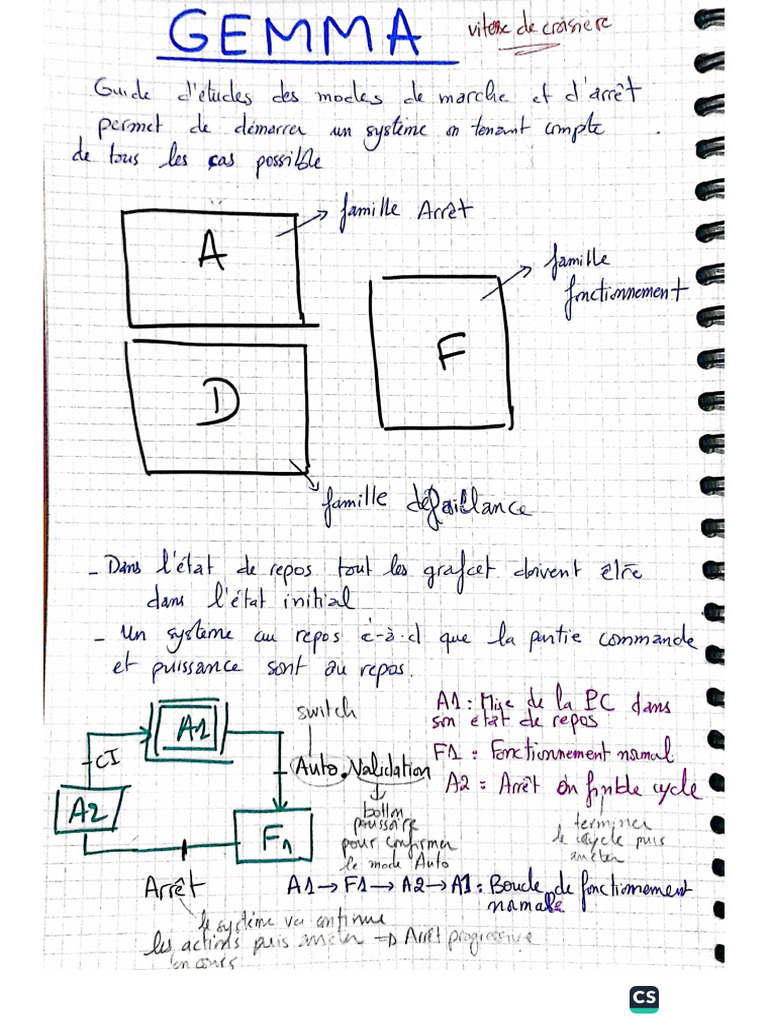 GEMMA
vitesse de croisière
Guide d'études des modes de marche et d'arrêt
permet de démarrer un système en tenant compte
de tous les cas possible
A
famille Arrêt
famille
fonctionnement
F
D
famille défaillance
- Dans l'état de repos tout les grafcet doivent être
dans l'état initial
- Un système au repos c-à-d que la partie commande
et puissance sont au repos.
A1
switch
CI
Auto.Validation
A2
F1
botton
poussoire
pour confirmer
le mode Auto
Arrêt
A1 : Mise de la PC dans
son état de repos
F1 : Fonctionnement normal
A2 : Arrêt en fin de cycle
terminer
le cycle puis
arrêter
A1 → F1 → A2 → A1 : Boucle de fonctionnement
normale
le système va continue
les actions puis arrêter → Arrêt progressive
en cours
CS